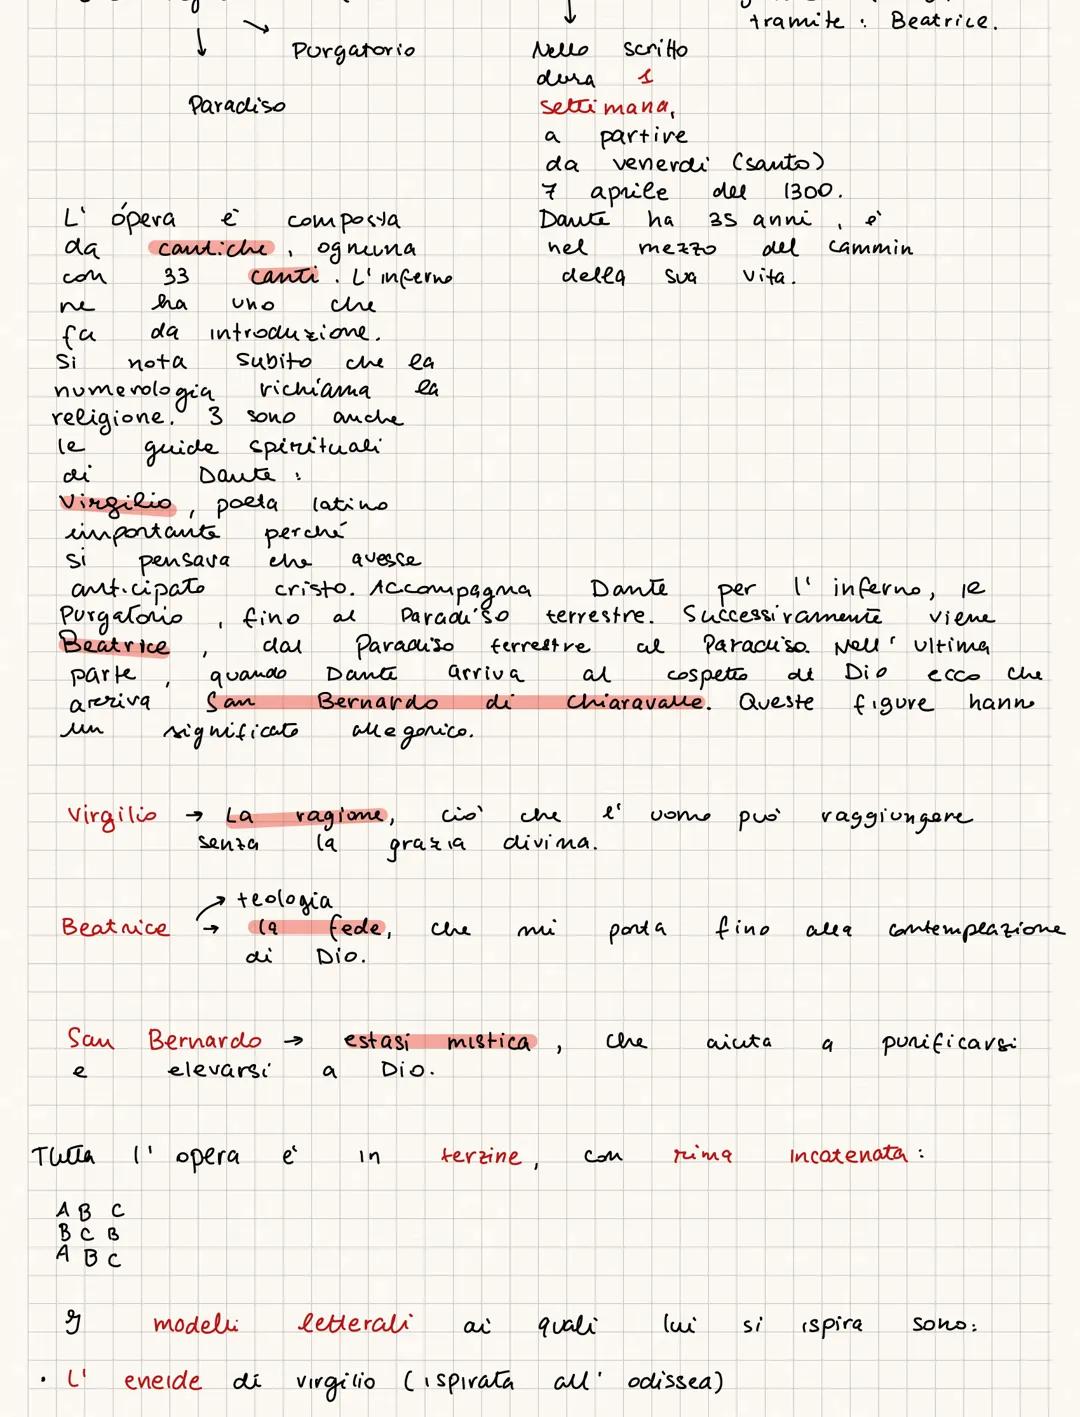 tramite : Beatrice.
Purgatorio
Paradiso
Nello scritto
dura 1
settimana,
a partire
da venerdi (santo)
7 aprile del 1300.
Dante ha 35 anni, è
nel mezzo del cammin
della sua vita.
L' ópera è composta
da cantiche, ognuna
con 33 canti. L'inferno
ne ha uno che
fa da introduzione.
Si nota subito che la
numerologia richiama la
religione. 3 sono anche
le guide spirituali
di Dante :
Virgilio, poeta latino
importante perché
si pensava che avesse
anticipato cristo. Accompagna Dante per l'inferno, il
Purgatorio, fino al Paradiso terrestre. Successivamente viene
Beatrice, dal Paradiso terrestre al Paradiso. Nell'ultima
parte, quando Dante arriva al cospetto di Dio ecco che
arriva San Bernardo di Chiaravalle. Queste figure hanno
un significato allegorico.
Virgilio → La ragione, ciò che l'uomo può raggiungere
senza la grazia divina.
→ teologia
Beatrice → la fede, che mi porta fino alla contemplazione
di Dio.
San Bernardo → estasi mistica, che aiuta a purificarsi
e elevarsi a Dio.
Tutta l'opera è in terzine, con rima incatenata :
A B C
B C B
A B C
I modelli letterali ai quali lui si ispira sono:
• L'eneide di virgilio (ispirata all'odissea)